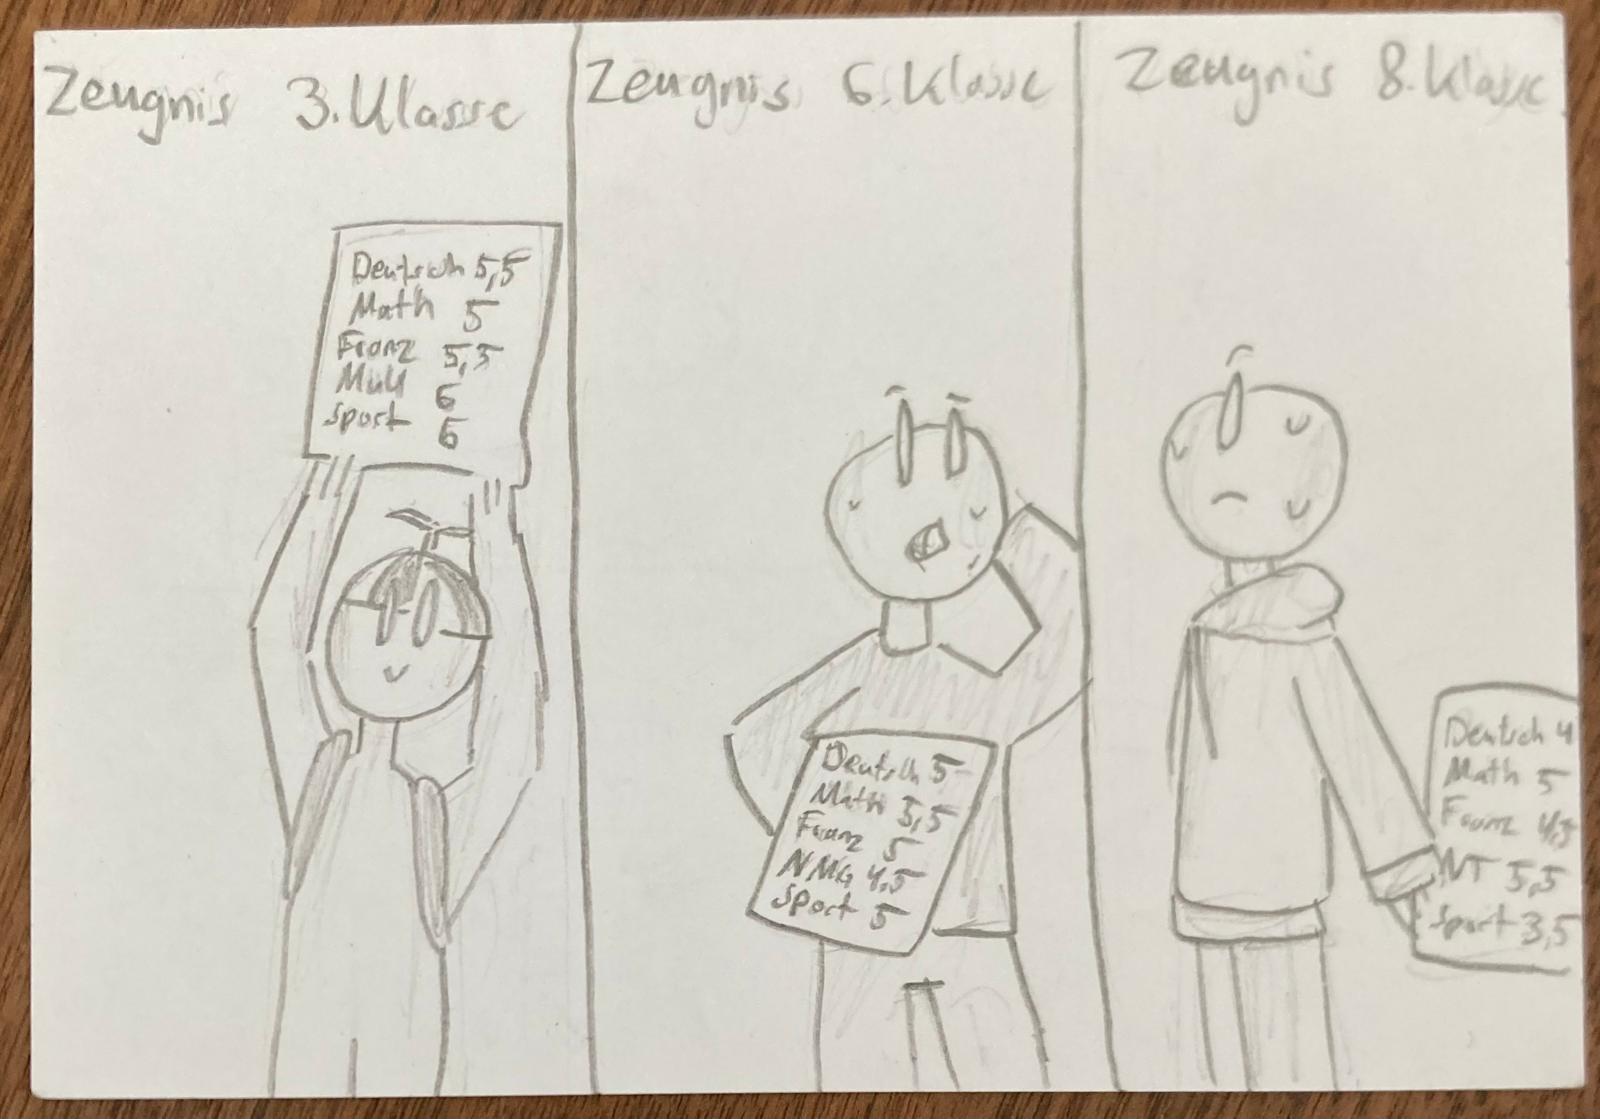 Zeugnis 3. Klasse
Deutsch 5,5
Math 5
Franz 5,5
6
Sport 6
Zeugnis 6. Klasse
Deutsch 5
Math 5,5
Franz 5
NMG 4,5
Sport 5
Zeugnis 8. Klasse
Deutsch 4
Math 5
Franz 4,5
NT 5,5
Sport 3,5